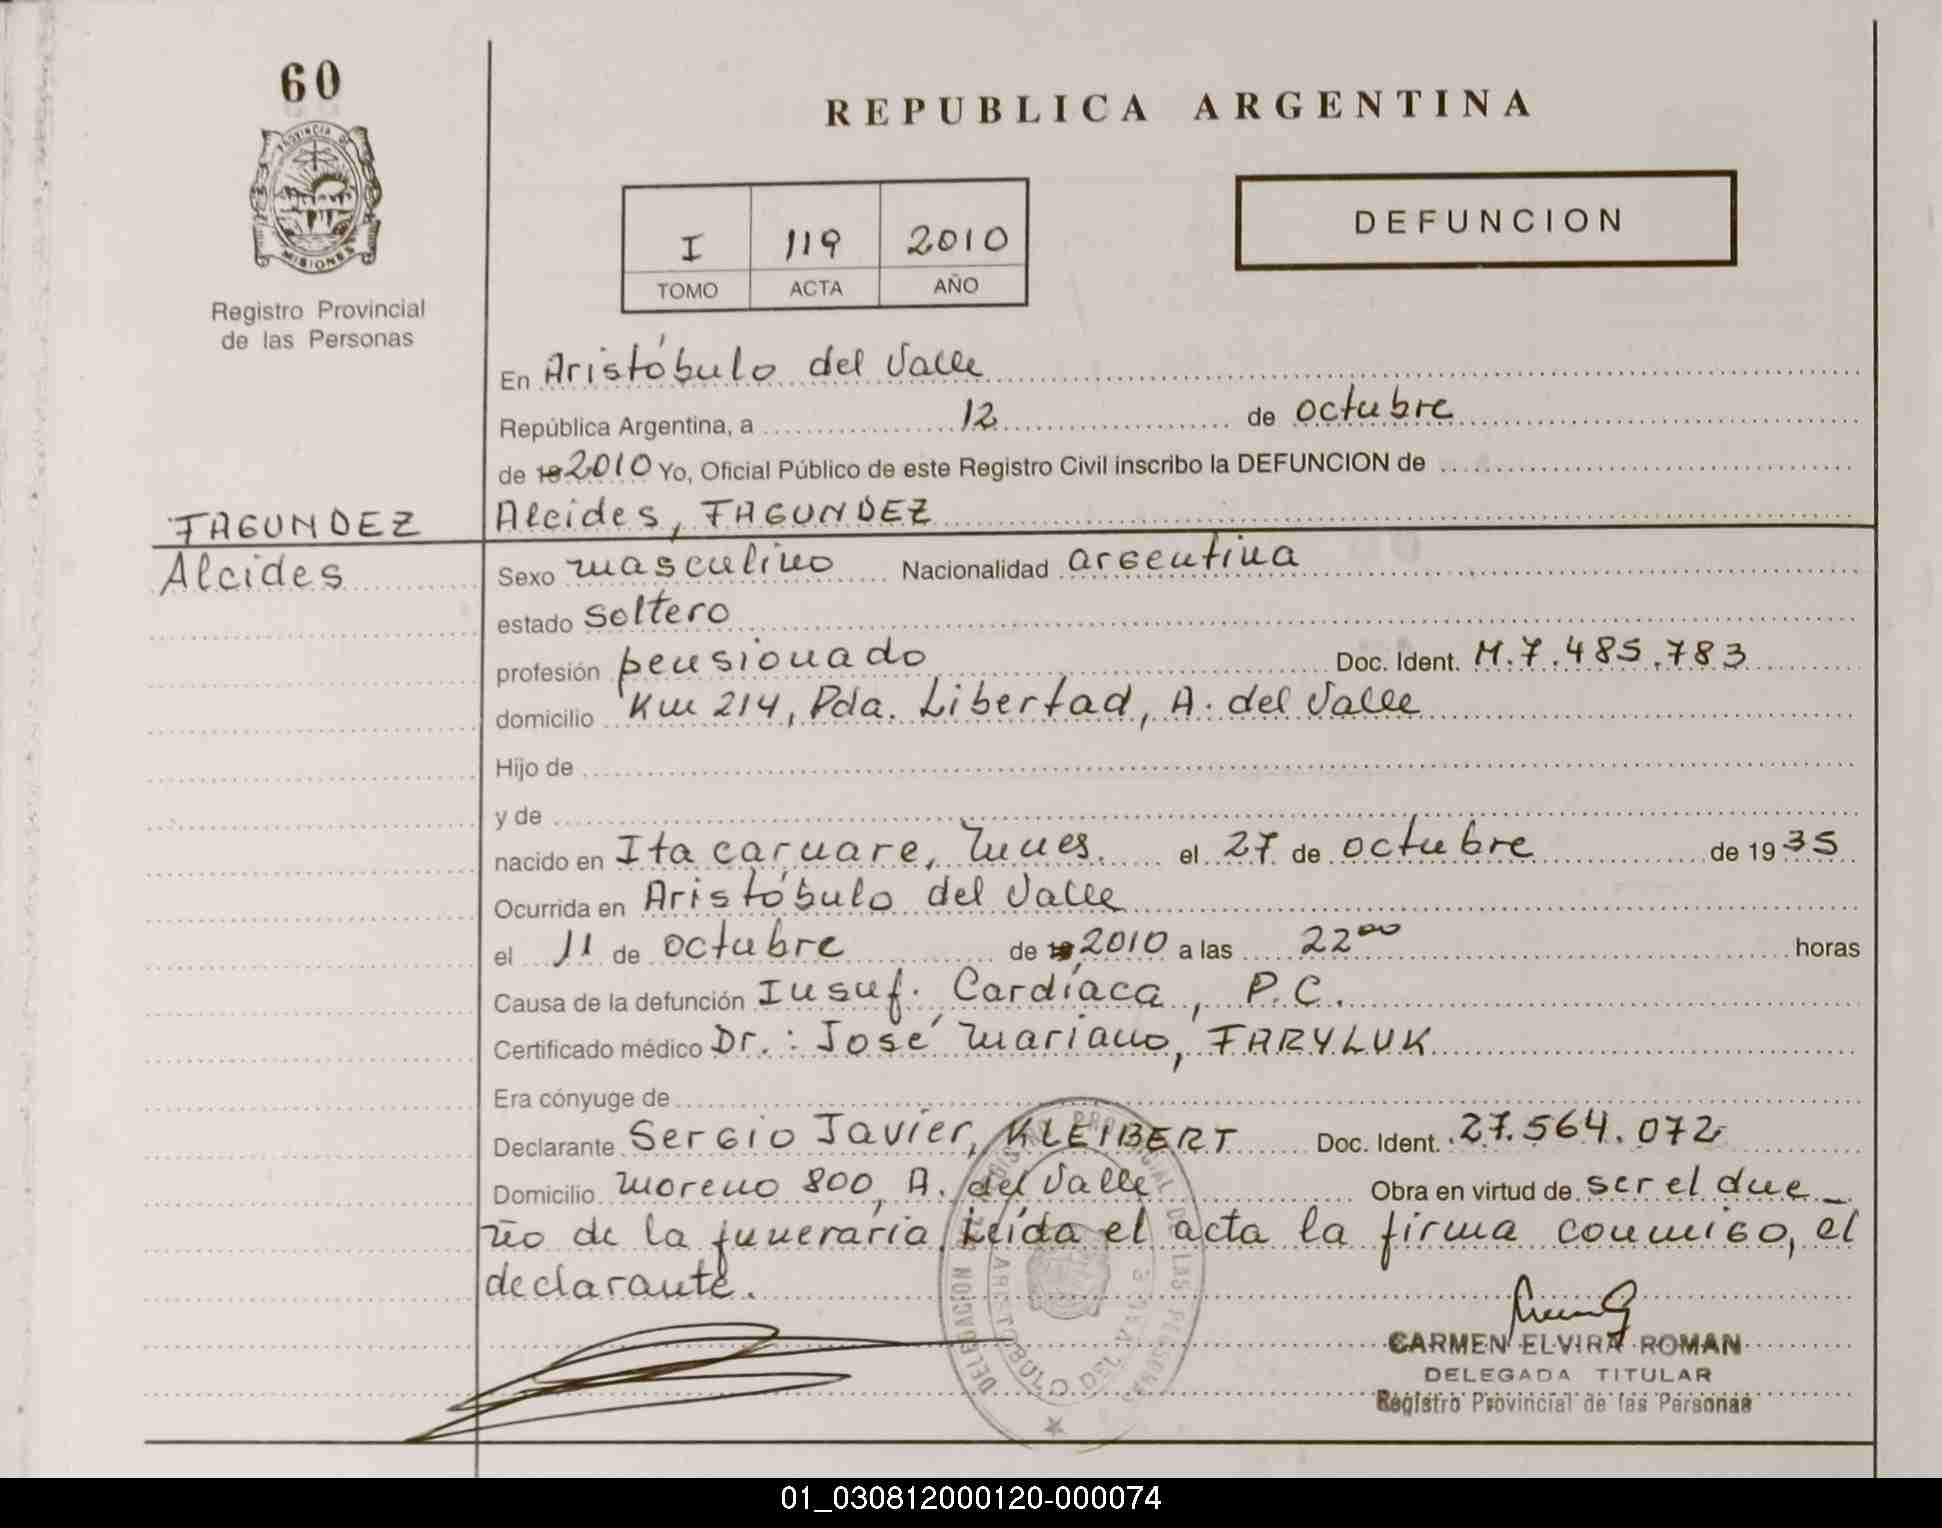 60
PROVINCIA DE
MISIONES
Registro Provincial
de las Personas
REPUBLICA ARGENTINA
I 119 2010
TOMO ACTA AÑO
DEFUNCION
En Aristóbulo del Valle
República Argentina, a 12 de octubre
de 19 2010 Yo, Oficial Público de este Registro Civil inscribo la DEFUNCION de
Alcides, FAGUNDEZ
FAGUNDEZ
Alcides
Sexo masculino Nacionalidad argentina
estado soltero
profesión pensionado Doc. Ident. M.7.485.783
domicilio Km 214, Pda. Libertad, A. del Valle
Hijo de
y de
nacido en Itacaruare, Mnes. el 27 de octubre de 1935
Ocurrida en Aristóbulo del Valle
el 11 de octubre de 19 2010 a las 22 00 horas
Causa de la defunción Insuf. Cardíaca, P.C.
Certificado médico Dr.: José Mariano, FARYLUK
Era cónyuge de
Declarante Sergio Javier, KLEIBERT Doc. Ident. 27.564.072
Domicilio Moreno 800, A. del Valle Obra en virtud de ser el due_
ño de la funeraria. Leída el acta la firma conmigo, el
declarante.
DELEGACION REGISTRO PROVINCIAL DE LAS PERSONAS
ARISTOBULO DEL VALLE
CARMEN ELVIRA ROMAN
DELEGADA TITULAR
Registro Provincial de las Personas
01_030812000120-000074